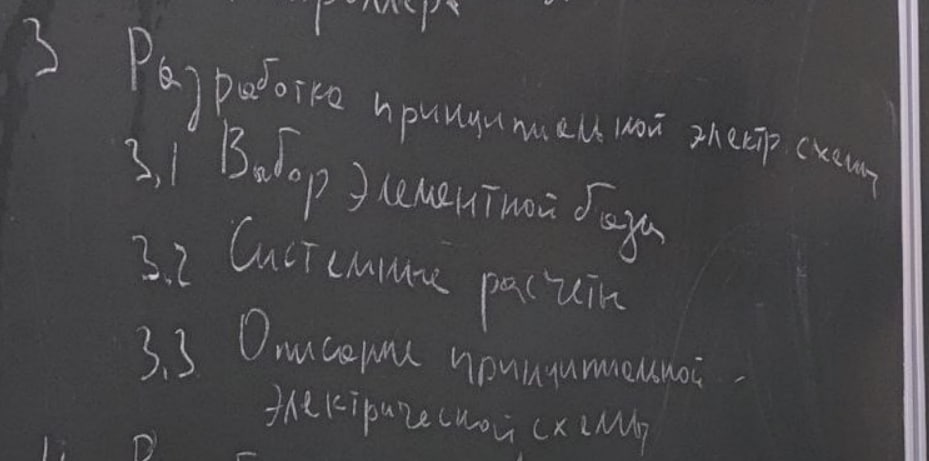 3 Разработка принципиальной электр. схемы
3.1 Выбор элементной базы
3.2 Системные расчеты
3.3 Описание принципиальной -
электрической схемы